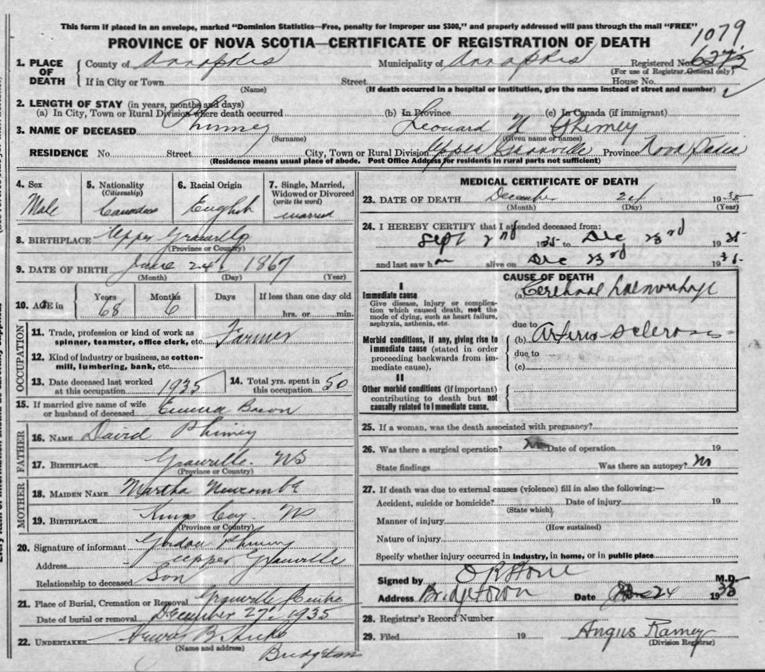 This form if placed in an envelope, marked "Dominion Statistics—Free, penalty for improper use $300," and properly addressed will pass through the mail "FREE"
1079
PROVINCE OF NOVA SCOTIA—CERTIFICATE OF REGISTRATION OF DEATH
1. PLACE OF DEATH County of Annapolis Municipality of Annapolis Registered No.
(For use of Registrar General only)
If in City or Town (Name) Street House No.
(If death occurred in a hospital or institution, give the name instead of street and number)
2. LENGTH OF STAY (in years, months and days)
(a) In City, Town or Rural Division where death occurred (b) In Province (c) In Canada (if immigrant)
3. NAME OF DECEASED Phinney Leonard N Phinney
(Surname) (Given names or names)
RESIDENCE No Street City, Town or Rural Division Upper Granville Province Nova Scotia
(Residence means usual place of abode. Post Office Address for residents in rural parts not sufficient)
4. Sex Male
5. Nationality (Citizenship) Canadian
6. Racial Origin English
7. Single, Married, Widowed or Divorced (write the word) married
8. BIRTHPLACE Upper Granville
(Province or Country)
9. DATE OF BIRTH June 24 1867
(Month) (Day) (Year)
10. AGE in Years 68 Months 6 Days If less than one day old hrs. or min.
OCCUPATION
11. Trade, profession or kind of work as spinner, teamster, office clerk, etc. Farmer
12. Kind of industry or business, as cotton-mill, lumbering, bank, etc.
13. Date deceased last worked at this occupation 1935
14. Total yrs. spent in this occupation 50
15. If married give name of wife or husband of deceased Emma Bacon
FATHER
16. NAME David Phinney
17. BIRTHPLACE Granville NS
(Province or Country)
MOTHER
18. MAIDEN NAME Martha Newcombe
19. BIRTHPLACE Kings Coy NS
(Province or Country)
20. Signature of informant Gordon Phinney
Address Upper Granville
Relationship to deceased Son
21. Place of Burial, Cremation or Removal Granville Centre
Date of burial or removal December 27 1935
22. UNDERTAKER
(Name and address) Bridgetown
MEDICAL CERTIFICATE OF DEATH
23. DATE OF DEATH December 24 1935
(Month) (Day) (Year)
24. I HEREBY CERTIFY that I attended deceased from:
Sept 2nd 1935 to Dec 23rd 1935
and last saw him alive on Dec 23rd 1935
CAUSE OF DEATH
I
Immediate cause
Give disease, injury or complication which caused death, not the mode of dying, such as heart failure, asphyxia, asthenia, etc.
(a) Cerebral haemorrhage
due to
Morbid conditions, if any, giving rise to immediate cause (stated in order proceeding backwards from immediate cause).
(b) Arterio sclerosis
due to
(c)
II
Other morbid conditions (if important) contributing to death but not causally related to immediate cause.
25. If a woman, was the death associated with pregnancy?
26. Was there a surgical operation? No Date of operation 19
State findings Was there an autopsy? No
27. If death was due to external causes (violence) fill in also the following:—
Accident, suicide or homicide? Date of injury 19
(State which)
Manner of injury
(How sustained)
Nature of injury
Specify whether injury occurred in industry, in home, or in public place
Signed by M.D.
Address Bridgetown Date Dec 24 1935
28. Registrar's Record Number
29. Filed 19 Angus Ramey
(Division Registrar)